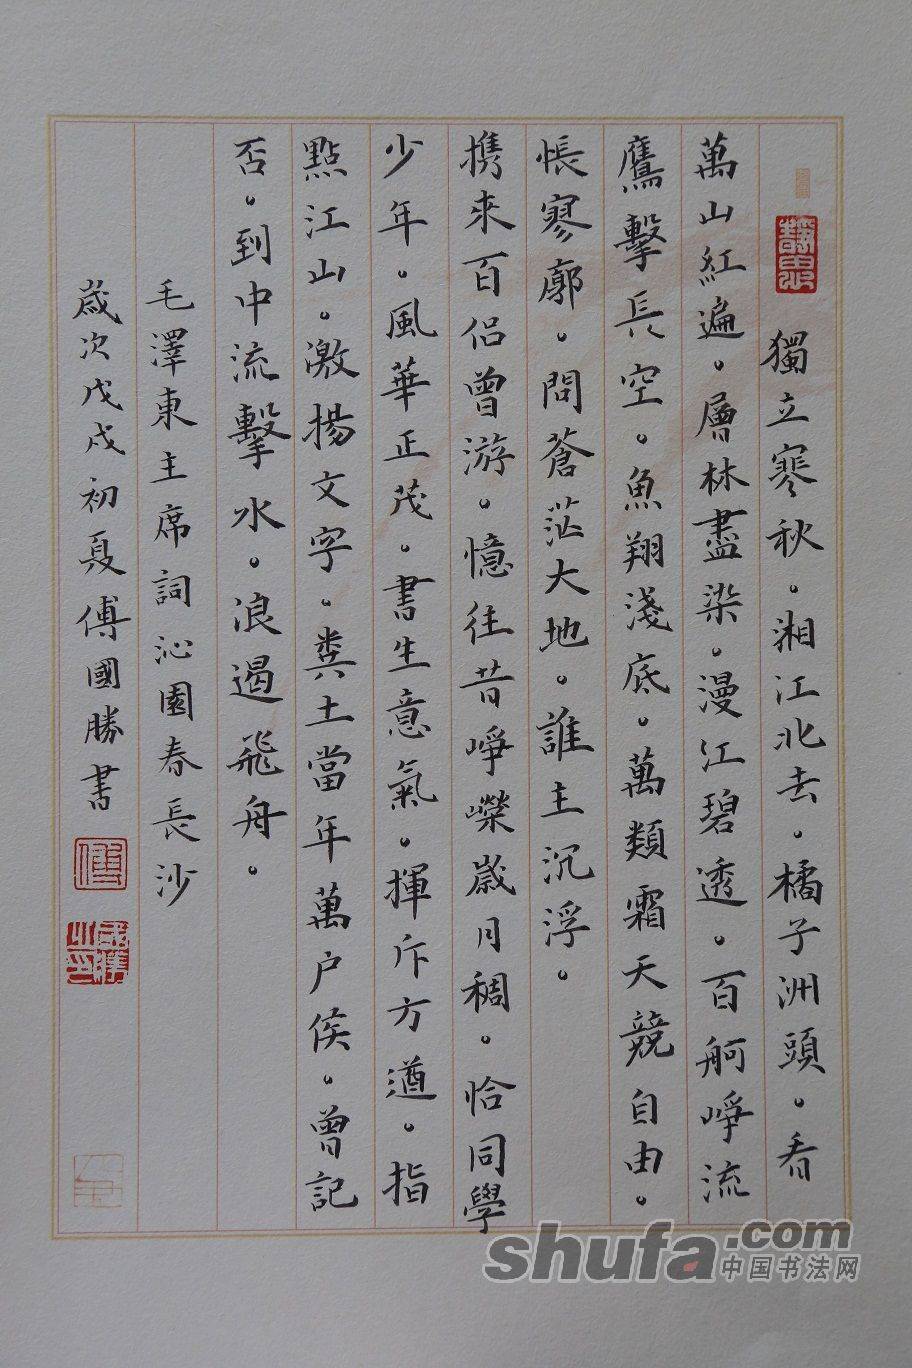 獨立寒秋。湘江北去。橘子洲頭。看
萬山紅遍。層林盡染。漫江碧透。百舸崢流
鷹擊長空。魚翔淺底。萬類霜天競自由。
悵寥廓。問蒼茫大地。誰主沉浮。
携來百侣曾游。憶往昔崢嶸歲月稠。恰同學
少年。風華正茂。書生意氣。揮斥方遒。指
點江山。激揚文字。糞土當年萬户侯。曾記
否。到中流擊水。浪遏飛舟。
毛澤東主席詞沁園春長沙
歲次戊戌初夏傅國勝書
shufa.com
中国书法网